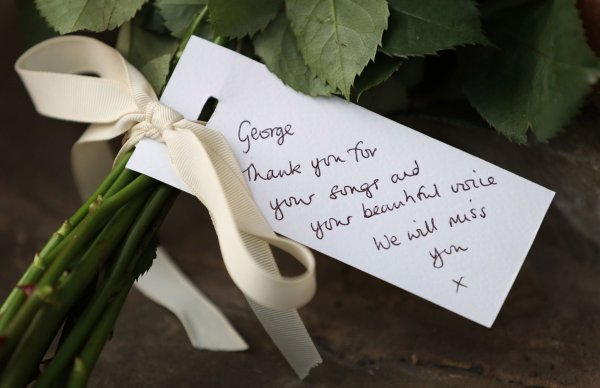 George
Thank you for
your songs and
your beautiful voice
We will miss
you
x